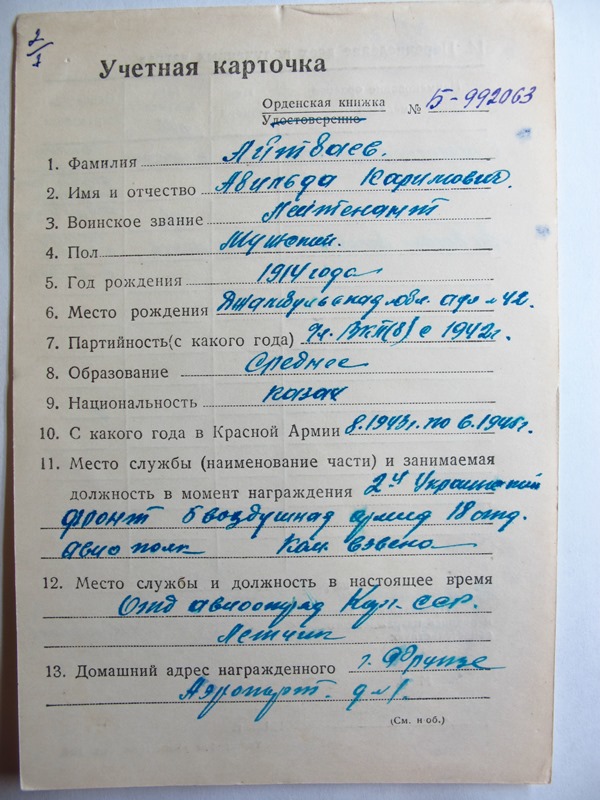 2/1
Учетная карточка
Орденская книжка
Удостоверение № Б-992063
1. Фамилия Айтбаев.
2. Имя и отчество Авильда Каримович.
3. Воинское звание Лейтенант
4. Пол Мужской.
5. Год рождения 1914 года
6. Место рождения Джамбульская обл. №42.
7. Партийность(с какого года) Чл. ВКП(б) с 1942г.
8. Образование Среднее
9. Национальность казах
10. С какого года в Красной Армии 8.1943г. по 6.1946г.
11. Место службы (наименование части) и занимаемая
должность в момент награждения 2й Украинский
фронт 5 воздушная армия 18 отд.
авиополк Ком. взвена
12. Место службы и должность в настоящее время
Отд авиоотряд Кир. сср.
Летчик
13. Домашний адрес награжденного г. Фрунзе
Аэропорт. д №1.
(См. н об.)